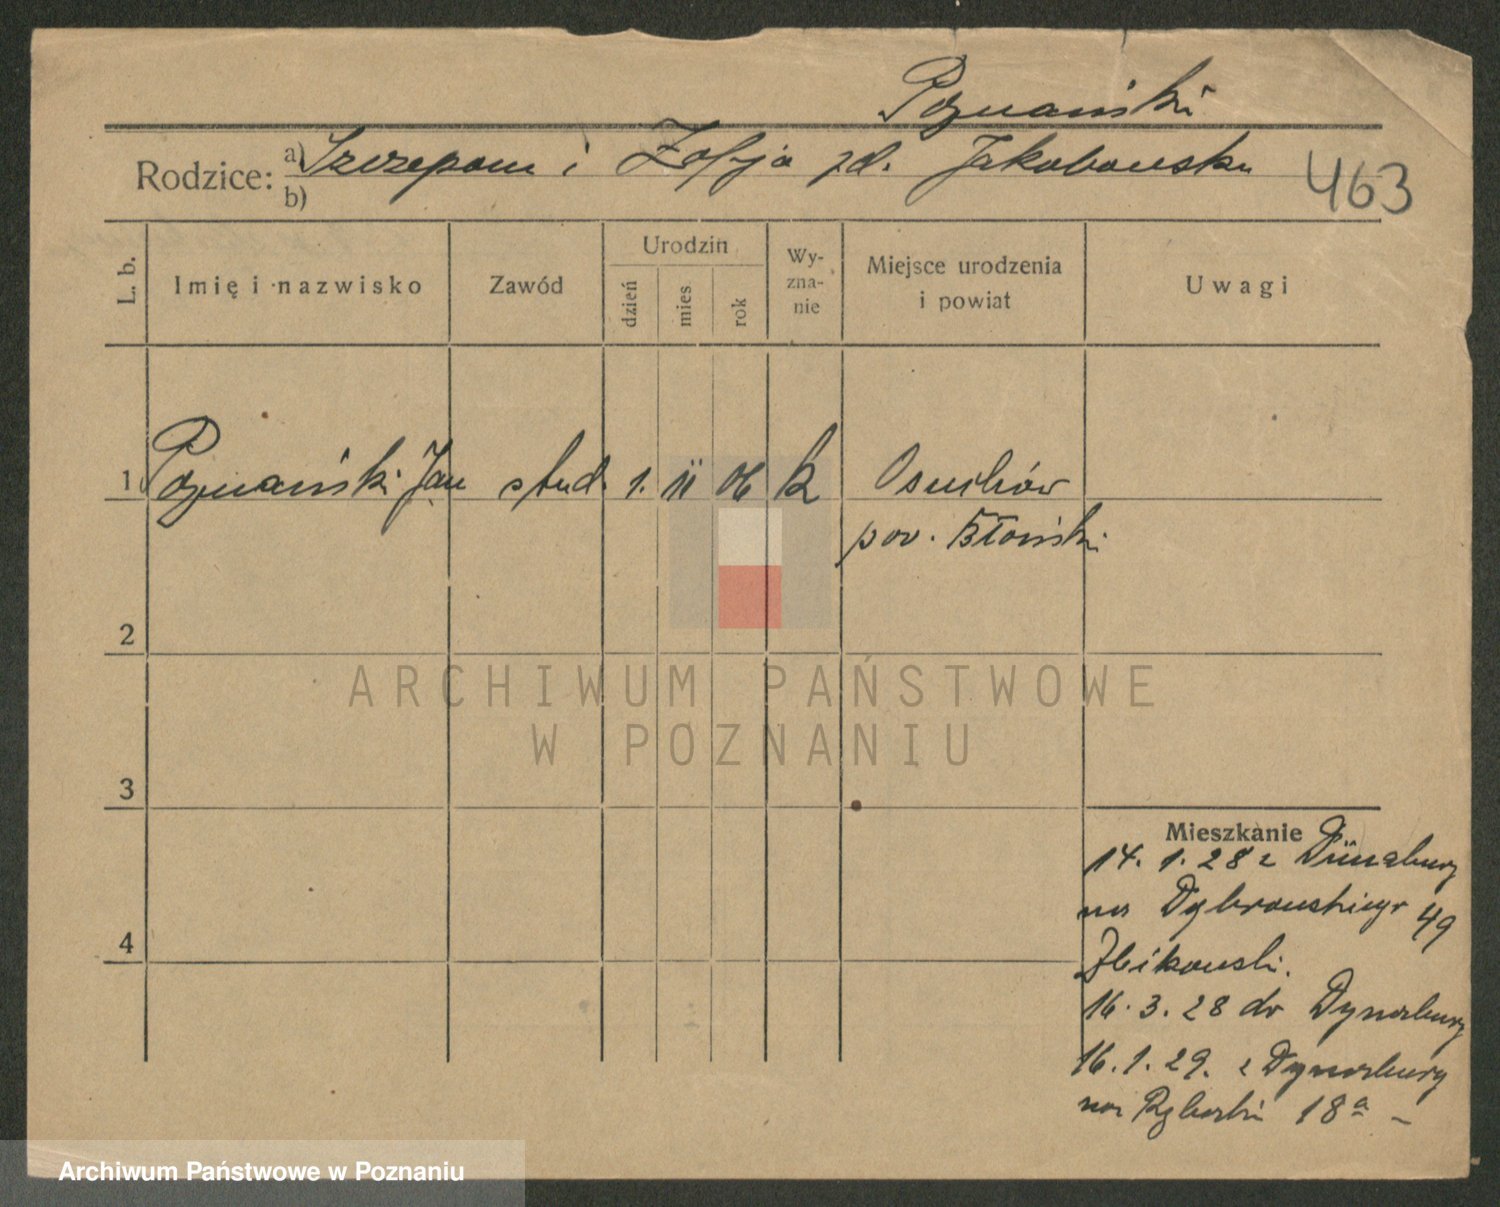 Poznański
Rodzice: a) Szczepan i Zofja zd. Jakubowska
b)
463
L. b.
Imię i nazwisko
Zawód
Urodzin
dzień
mies
rok
Wy-
zna-
nie
Miejsce urodzenia
i powiat
Uwagi
1 Poznański Jan stud. 1. II 06 k Osuchów
pow. Błoński
2
3
4
Mieszkanie
14. 1. 28 z Dünaburg
na Dąbrowskiego 49
Zbikowski.
16. 3. 28 do Dynaburg
16. 1. 29. z Dynaburg
na Rybaki 18a –
ARCHIWUM PAŃSTWOWE
W POZNANIU
Archiwum Państwowe w Poznaniu